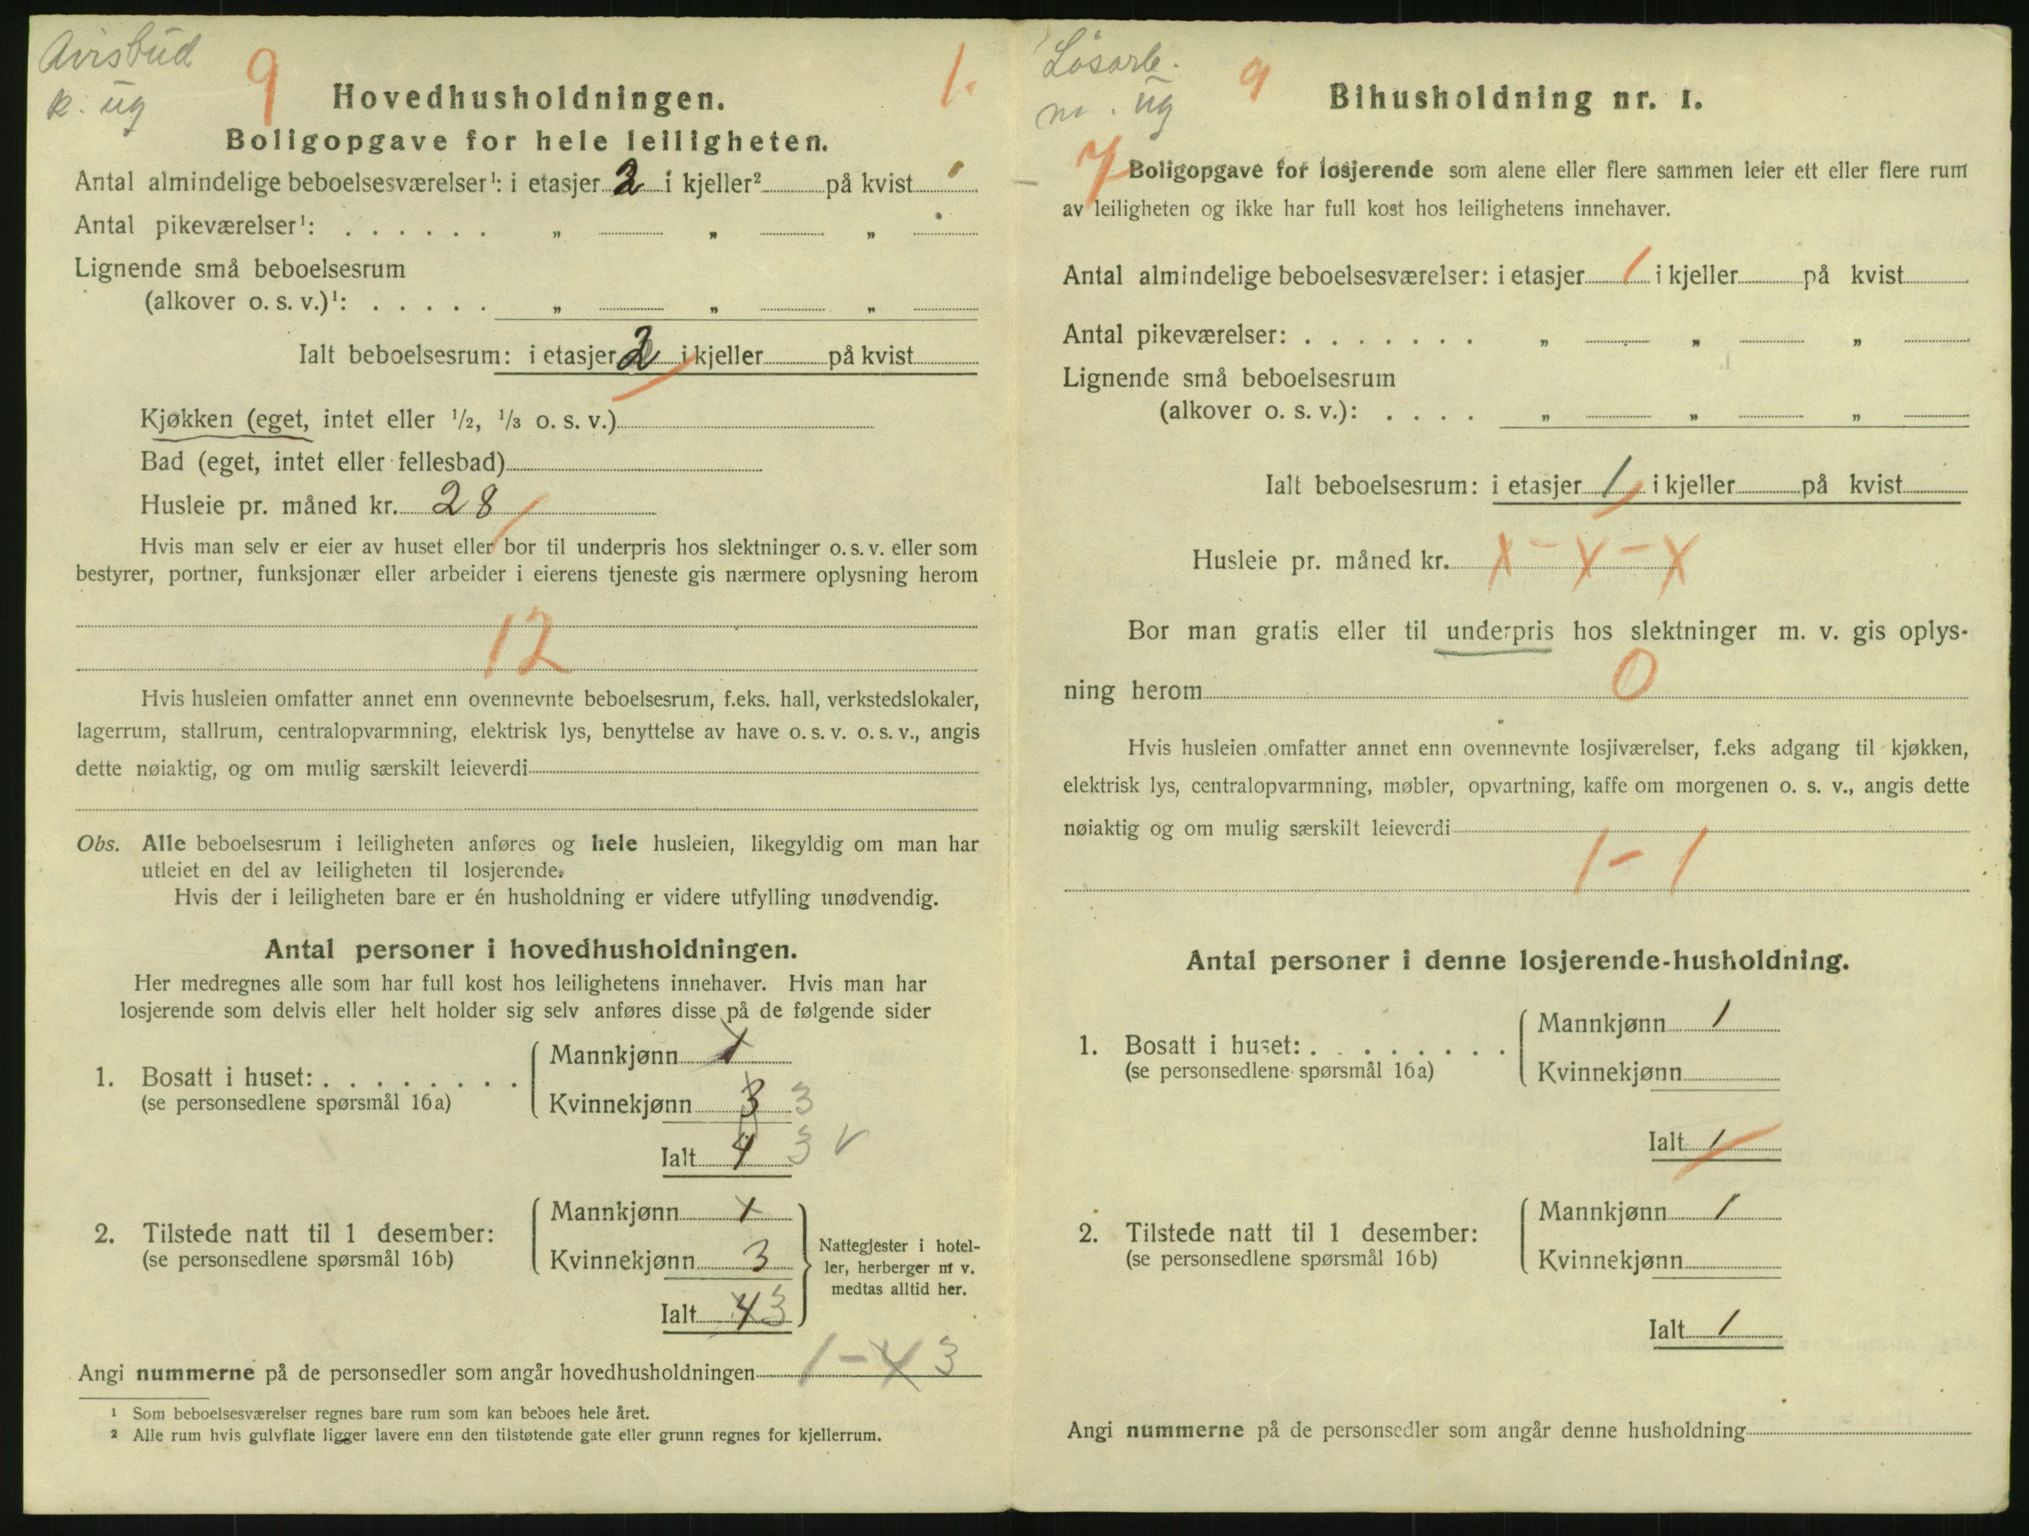 Avisbud
k. ug
9
1.
Hovedhusholdningen.
Boligopgave for hele leiligheten.
Antal almindelige beboelsesværelser¹: i etasjer 2 i kjeller² på kvist
Antal pikeværelser¹: . . . . . . „ „ „
Lignende små beboelsesrum
(alkover o. s. v.)¹: . . . . . „ „ „
Ialt beboelsesrum: i etasjer 2 i kjeller på kvist
Kjøkken (eget, intet eller ½, ⅓ o. s. v.)
Bad (eget, intet eller fellesbad)
Husleie pr. måned kr. 28
Hvis man selv er eier av huset eller bor til underpris hos slektninger o. s. v. eller som
bestyrer, portner, funksjonær eller arbeider i eierens tjeneste gis nærmere oplysning herom
12
Hvis husleien omfatter annet enn ovennevnte beboelsesrum, f.eks. hall, verkstedslokaler,
lagerrum, stallrum, centralopvarmning, elektrisk lys, benyttelse av have o. s. v. o. s. v., angis
dette nøiaktig, og om mulig særskilt leieverdi
Obs. Alle beboelsesrum i leiligheten anføres og hele husleien, likegyldig om man har
utleiet en del av leiligheten til losjerende.
Hvis der i leiligheten bare er én husholdning er videre utfylling unødvendig.
Antal personer i hovedhusholdningen.
Her medregnes alle som har full kost hos leilighetens innehaver. Hvis man har
losjerende som delvis eller helt holder sig selv anføres disse på de følgende sider
1. Bosatt i huset: . . . . . . . .
(se personsedlene spørsmål 16a)
Mannkjønn 1
Kvinnekjønn 3 3
Ialt 4 3 v
2. Tilstede natt til 1 desember:
(se personsedlene spørsmål 16b)
Mannkjønn 1
Kvinnekjønn 3
Ialt 4 3
Nattegjester i hotel-
ler, herberger m v.
medtas alltid her.
Angi nummerne på de personsedler som angår hovedhusholdningen 1-4 3
¹ Som beboelsesværelser regnes bare rum som kan beboes hele året.
² Alle rum hvis gulvflate ligger lavere enn den tilstøtende gate eller grunn regnes for kjellerrum.
Løsarb.
m. ug
9
Bihusholdning nr. 1.
7
Boligopgave for losjerende som alene eller flere sammen leier ett eller flere rum
av leiligheten og ikke har full kost hos leilighetens innehaver.
Antal almindelige beboelsesværelser: i etasjer 1 i kjeller på kvist
Antal pikeværelser: . . . . . . . „ „ „
Lignende små beboelsesrum
(alkover o. s. v.): . . . . „ „ „
Ialt beboelsesrum: i etasjer 1 i kjeller på kvist
Husleie pr. måned kr. x - x - x
Bor man gratis eller til underpris hos slektninger m. v. gis oplys-
ning herom 0
Hvis husleien omfatter annet enn ovennevnte losjiværelser, f.eks adgang til kjøkken,
elektrisk lys, centralopvarmning, møbler, opvartning, kaffe om morgenen o. s. v., angis dette
nøiaktig og om mulig særskilt leieverdi
1 - 1
Antal personer i denne losjerende-husholdning.
1. Bosatt i huset: . . . . . . . .
(se personsedlene spørsmål 16a)
Mannkjønn 1
Kvinnekjønn
Ialt 1
2. Tilstede natt til 1 desember:
(se personsedlene spørsmål 16b)
Mannkjønn 1
Kvinnekjønn
Ialt 1
Angi nummerne på de personsedler som angår denne husholdning